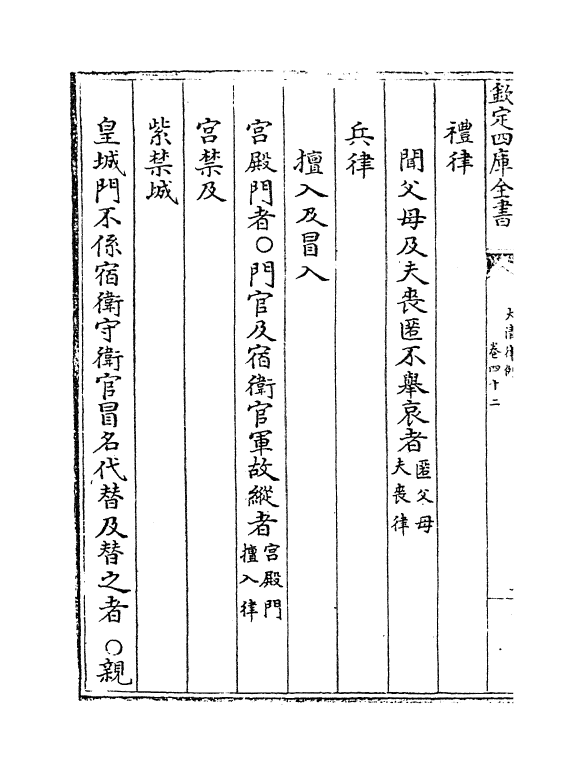 欽定四庫全書
大清律例
卷四十二
禮律
聞父母及夫喪匿不舉哀者匿父母夫喪律
兵律
擅入及冒入
宮殿門者○門官及宿衛官軍故縱者宮殿門擅入律
宮禁及
紫禁城
皇城門不係宿衛守衛官冒名代替及替之者○親